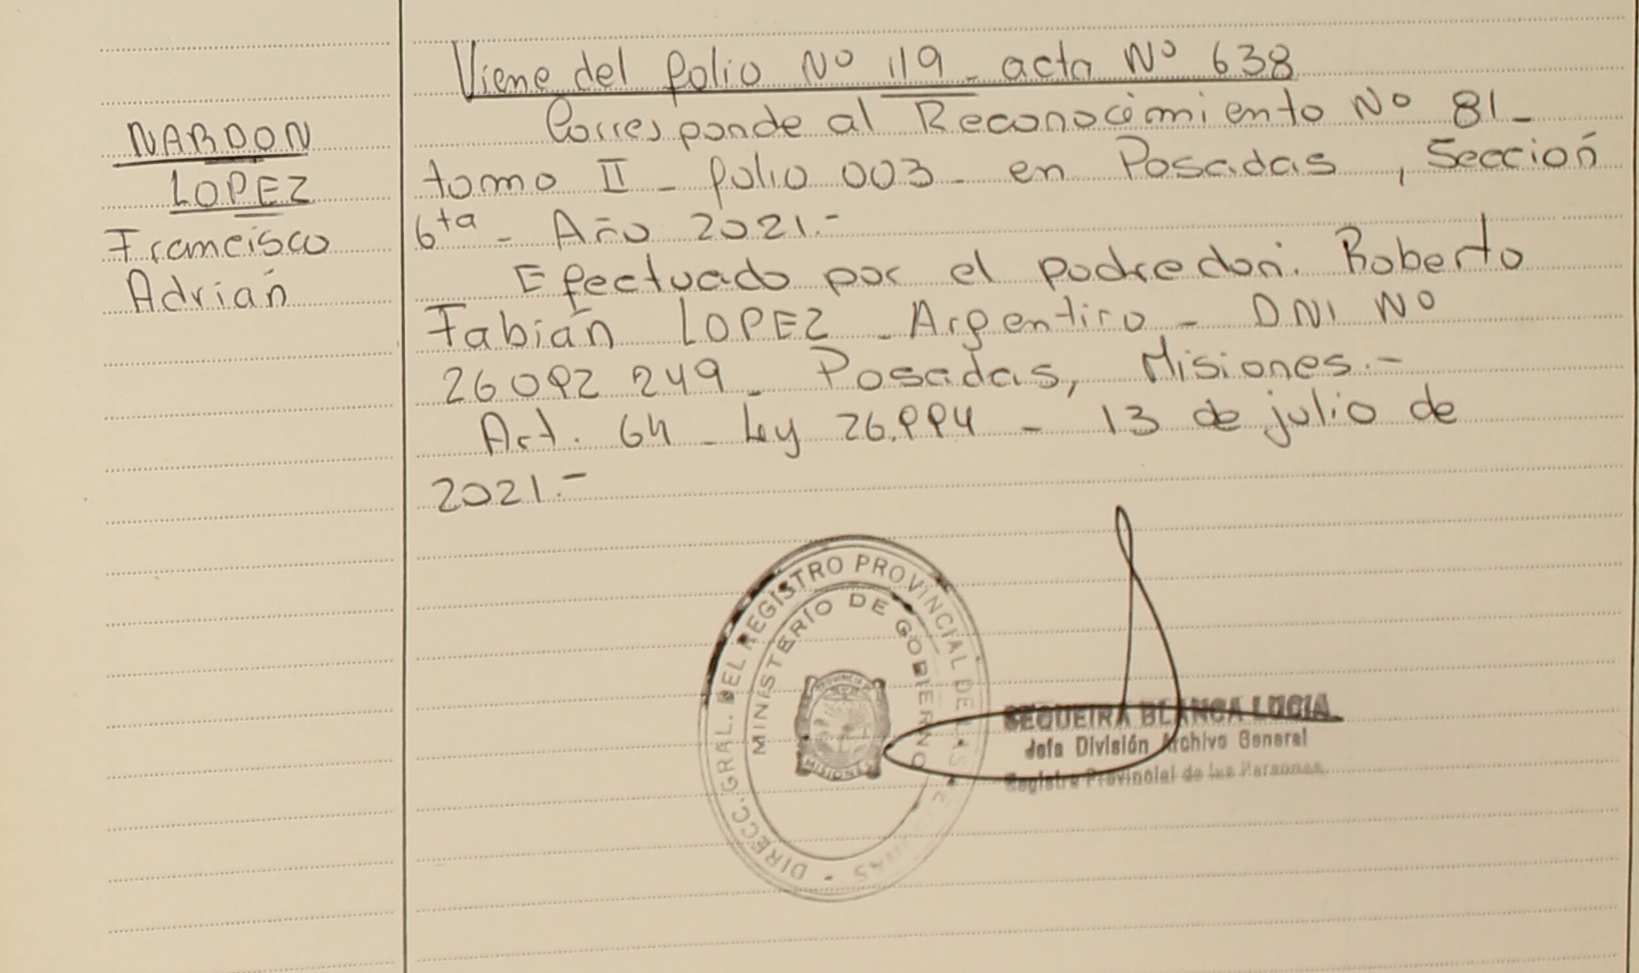 Viene del folio Nº 119 - acta Nº 638
Corresponde al Reconocimiento Nº 81 -
NARDON
LOPEZ
Francisco
Adrián
tomo II - folio 003 - en Posadas, Sección
6ta - Año 2021.-
Efectuado por el padre don: Roberto
Fabián LOPEZ - Argentino - DNI Nº
26092249 - Posadas, Misiones.-
Art. 64 - Ley 26.994 - 13 de julio de
2021.-
DIRECC. GRAL. DEL REGISTRO PROVINCIAL DE
MINISTERIO DE GOBIERNO
PROVINCIA DE
MISIONES
SEQUEIRA BLANCA LUCIA
Jefa División Archivo General
Registro Provincial de las Personas